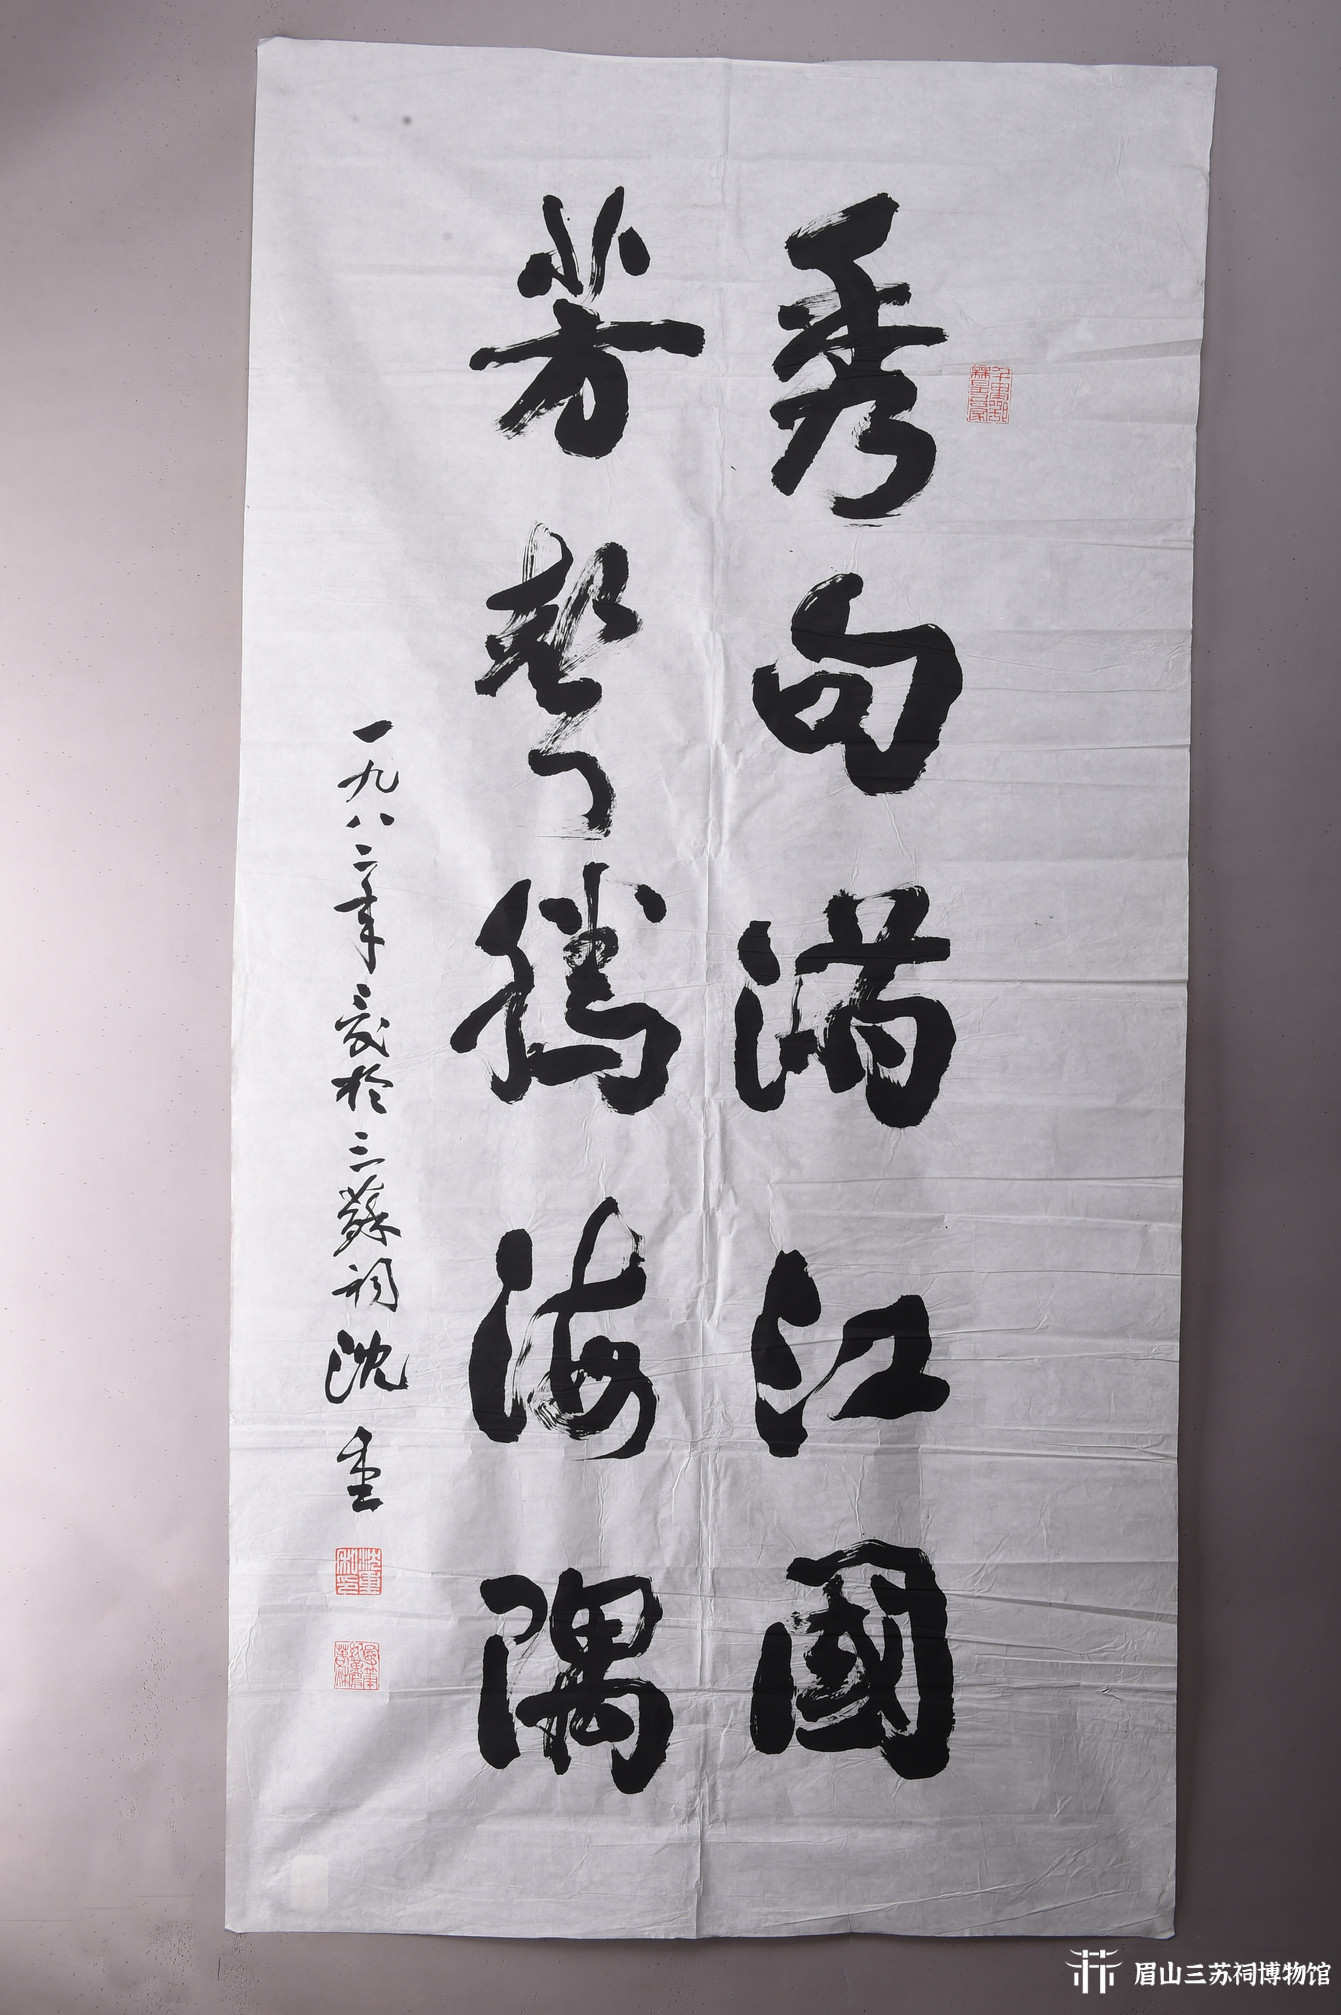 秀句满江国
芳声腾海隅
一九八二年 二月 於三蘇祠 沈重
眉山三苏祠博物馆